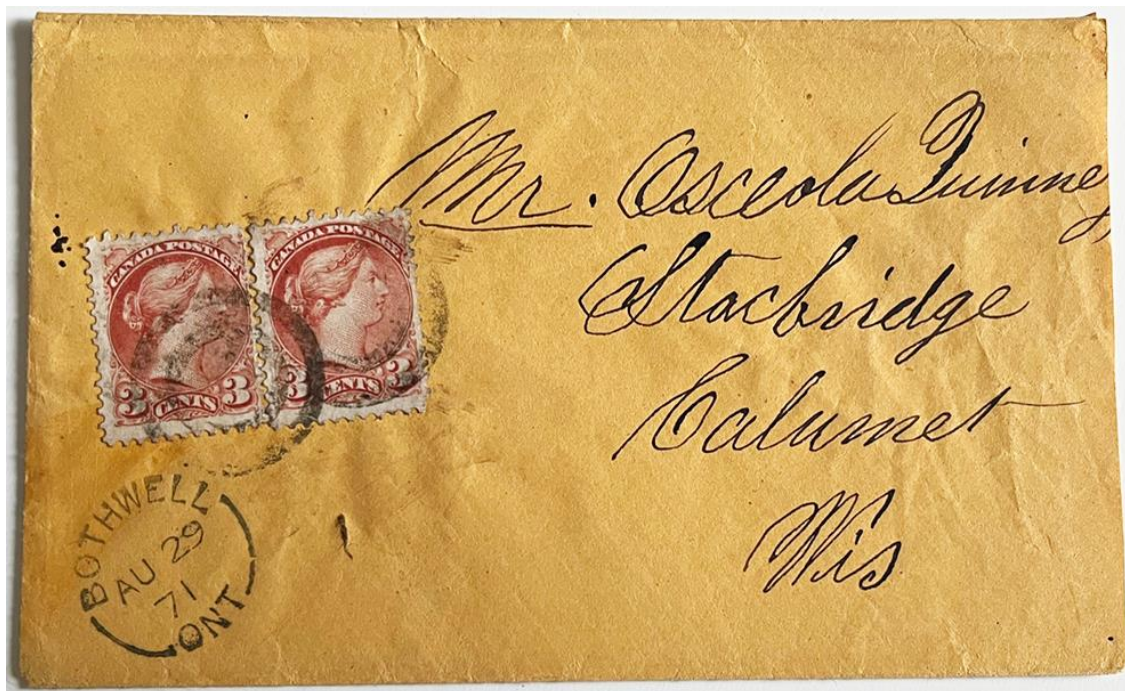 Mr. Osceola Quinney
Stocbridge
Calumet
Wis
CANADA POSTAGE
3 CENTS 3
CANADA POSTAGE
3 CENTS 3
BOTHWELL
AU 29
71
ONT